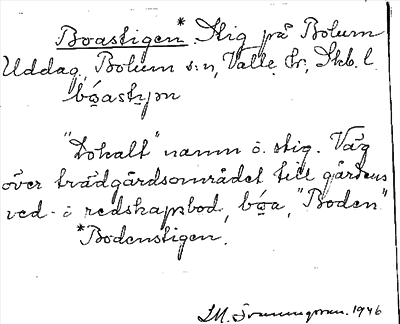 Boastigen* Stig på Bolum
Uddag, Bolum s:n, Valle hr, Skb. l.
bɷ́astɩ̣n
"Lokalt" namn å stig. Väg
över trädgårdsområdet till gårdens
ved- o redskapsbod, bɷ́a, "Boden"
*Bodenstigen.
1946